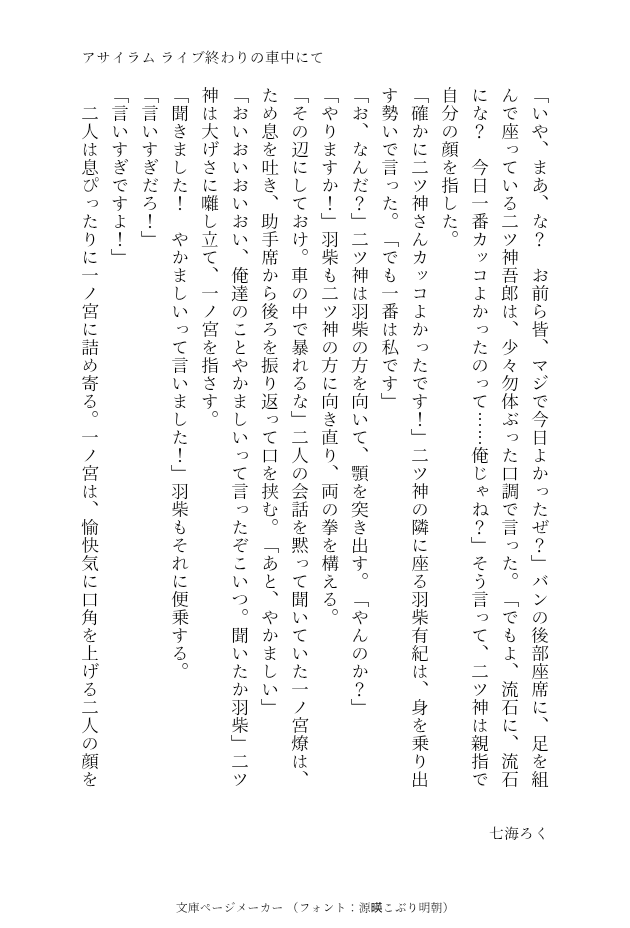 アサイラム ライブ終わりの車中にて
「いや、まあ、な？　お前ら皆、マジで今日よかったぜ？」バンの後部座席に、足を組
んで座っている二ツ神吾郎は、少々勿体ぶった口調で言った。「でもよ、流石に、流石
にな？　今日一番カッコよかったのって……俺じゃね？」そう言って、二ツ神は親指で
自分の顔を指した。
「確かに二ツ神さんカッコよかったです！」二ツ神の隣に座る羽柴有紀は、身を乗り出
す勢いで言った。「でも一番は私です」
「お、なんだ？」二ツ神は羽柴の方を向いて、顎を突き出す。「やんのか？」
「やりますか！」羽柴も二ツ神の方に向き直り、両の拳を構える。
「その辺にしておけ。車の中で暴れるな」二人の会話を黙って聞いていた一ノ宮燎は、
ため息を吐き、助手席から後ろを振り返って口を挟む。「あと、やかましい」
「おいおいおいおい、俺達のことやかましいって言ったぞこいつ。聞いたか羽柴」二ツ
神は大げさに囃し立て、一ノ宮を指さす。
「聞きました！　やかましいって言いました！」羽柴もそれに便乗する。
「言いすぎだろ！」
「言いすぎですよ！」
　二人は息ぴったりに一ノ宮に詰め寄る。一ノ宮は、愉快気に口角を上げる二人の顔を
七海ろく
文庫ページメーカー（フォント：源暎こぶり明朝）